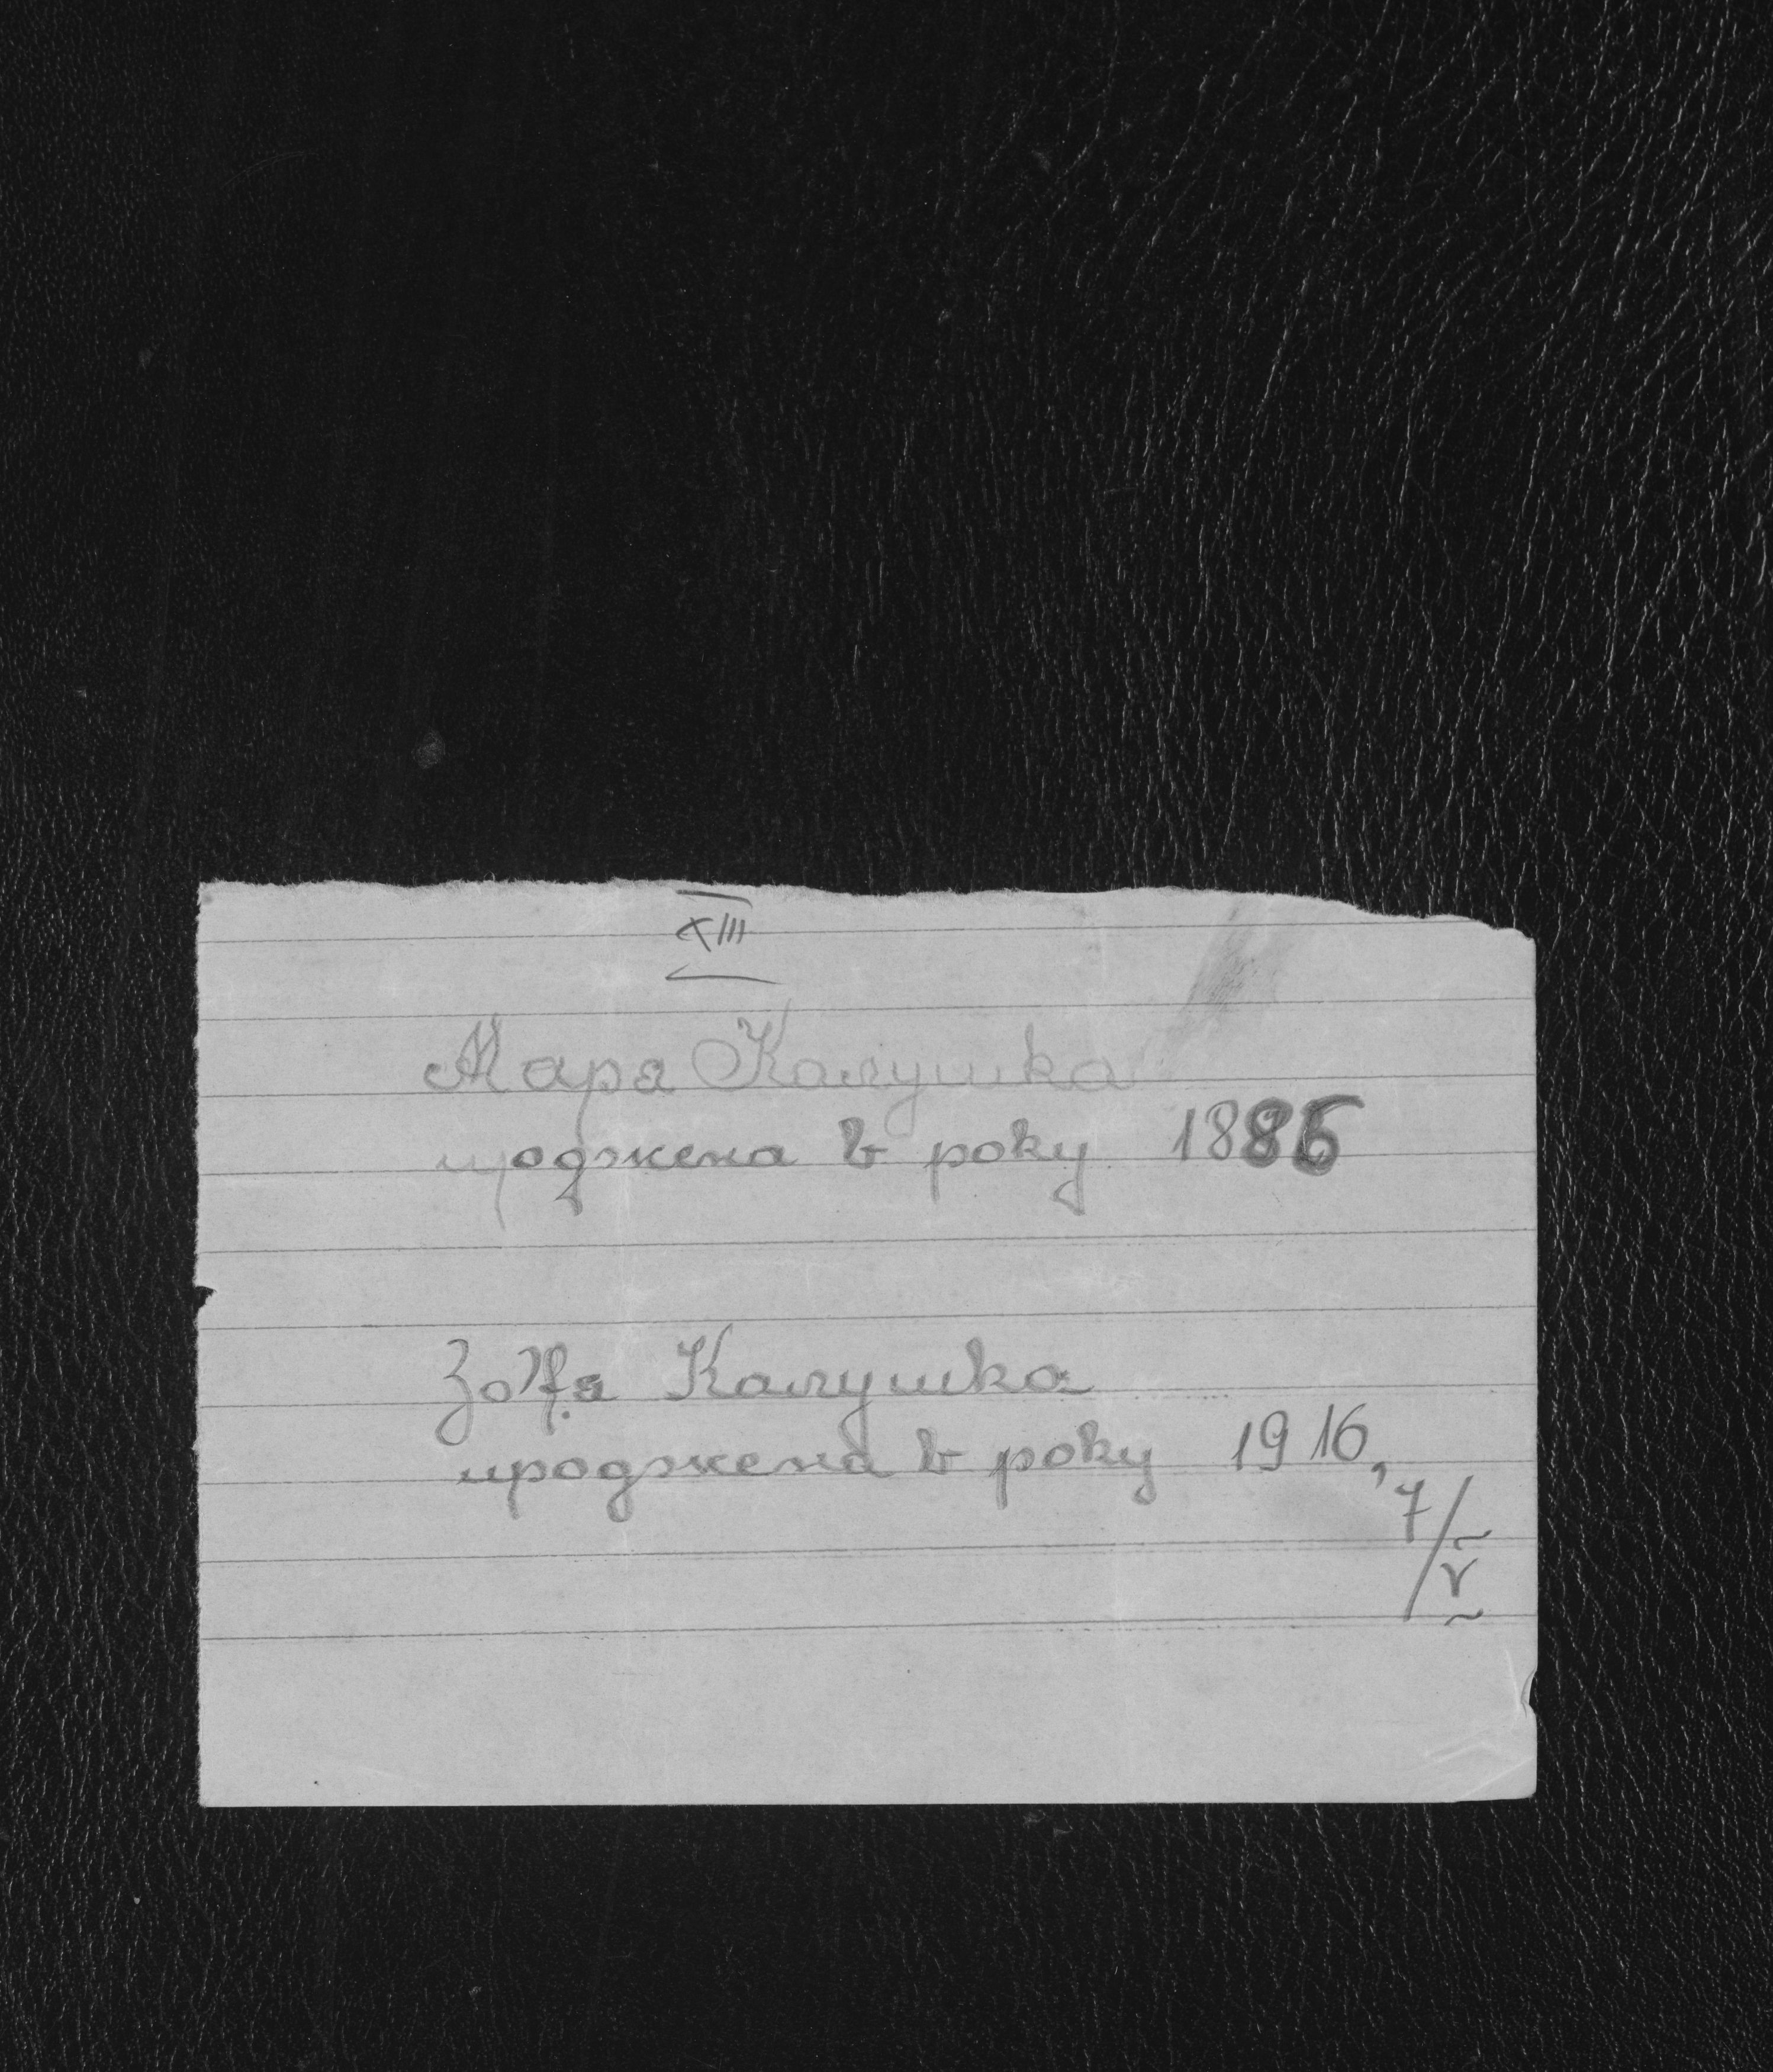 XIII
Маря Калушка
уроджена в року 1886
Зофя Калушка
уроджена в року 1916, 7/V